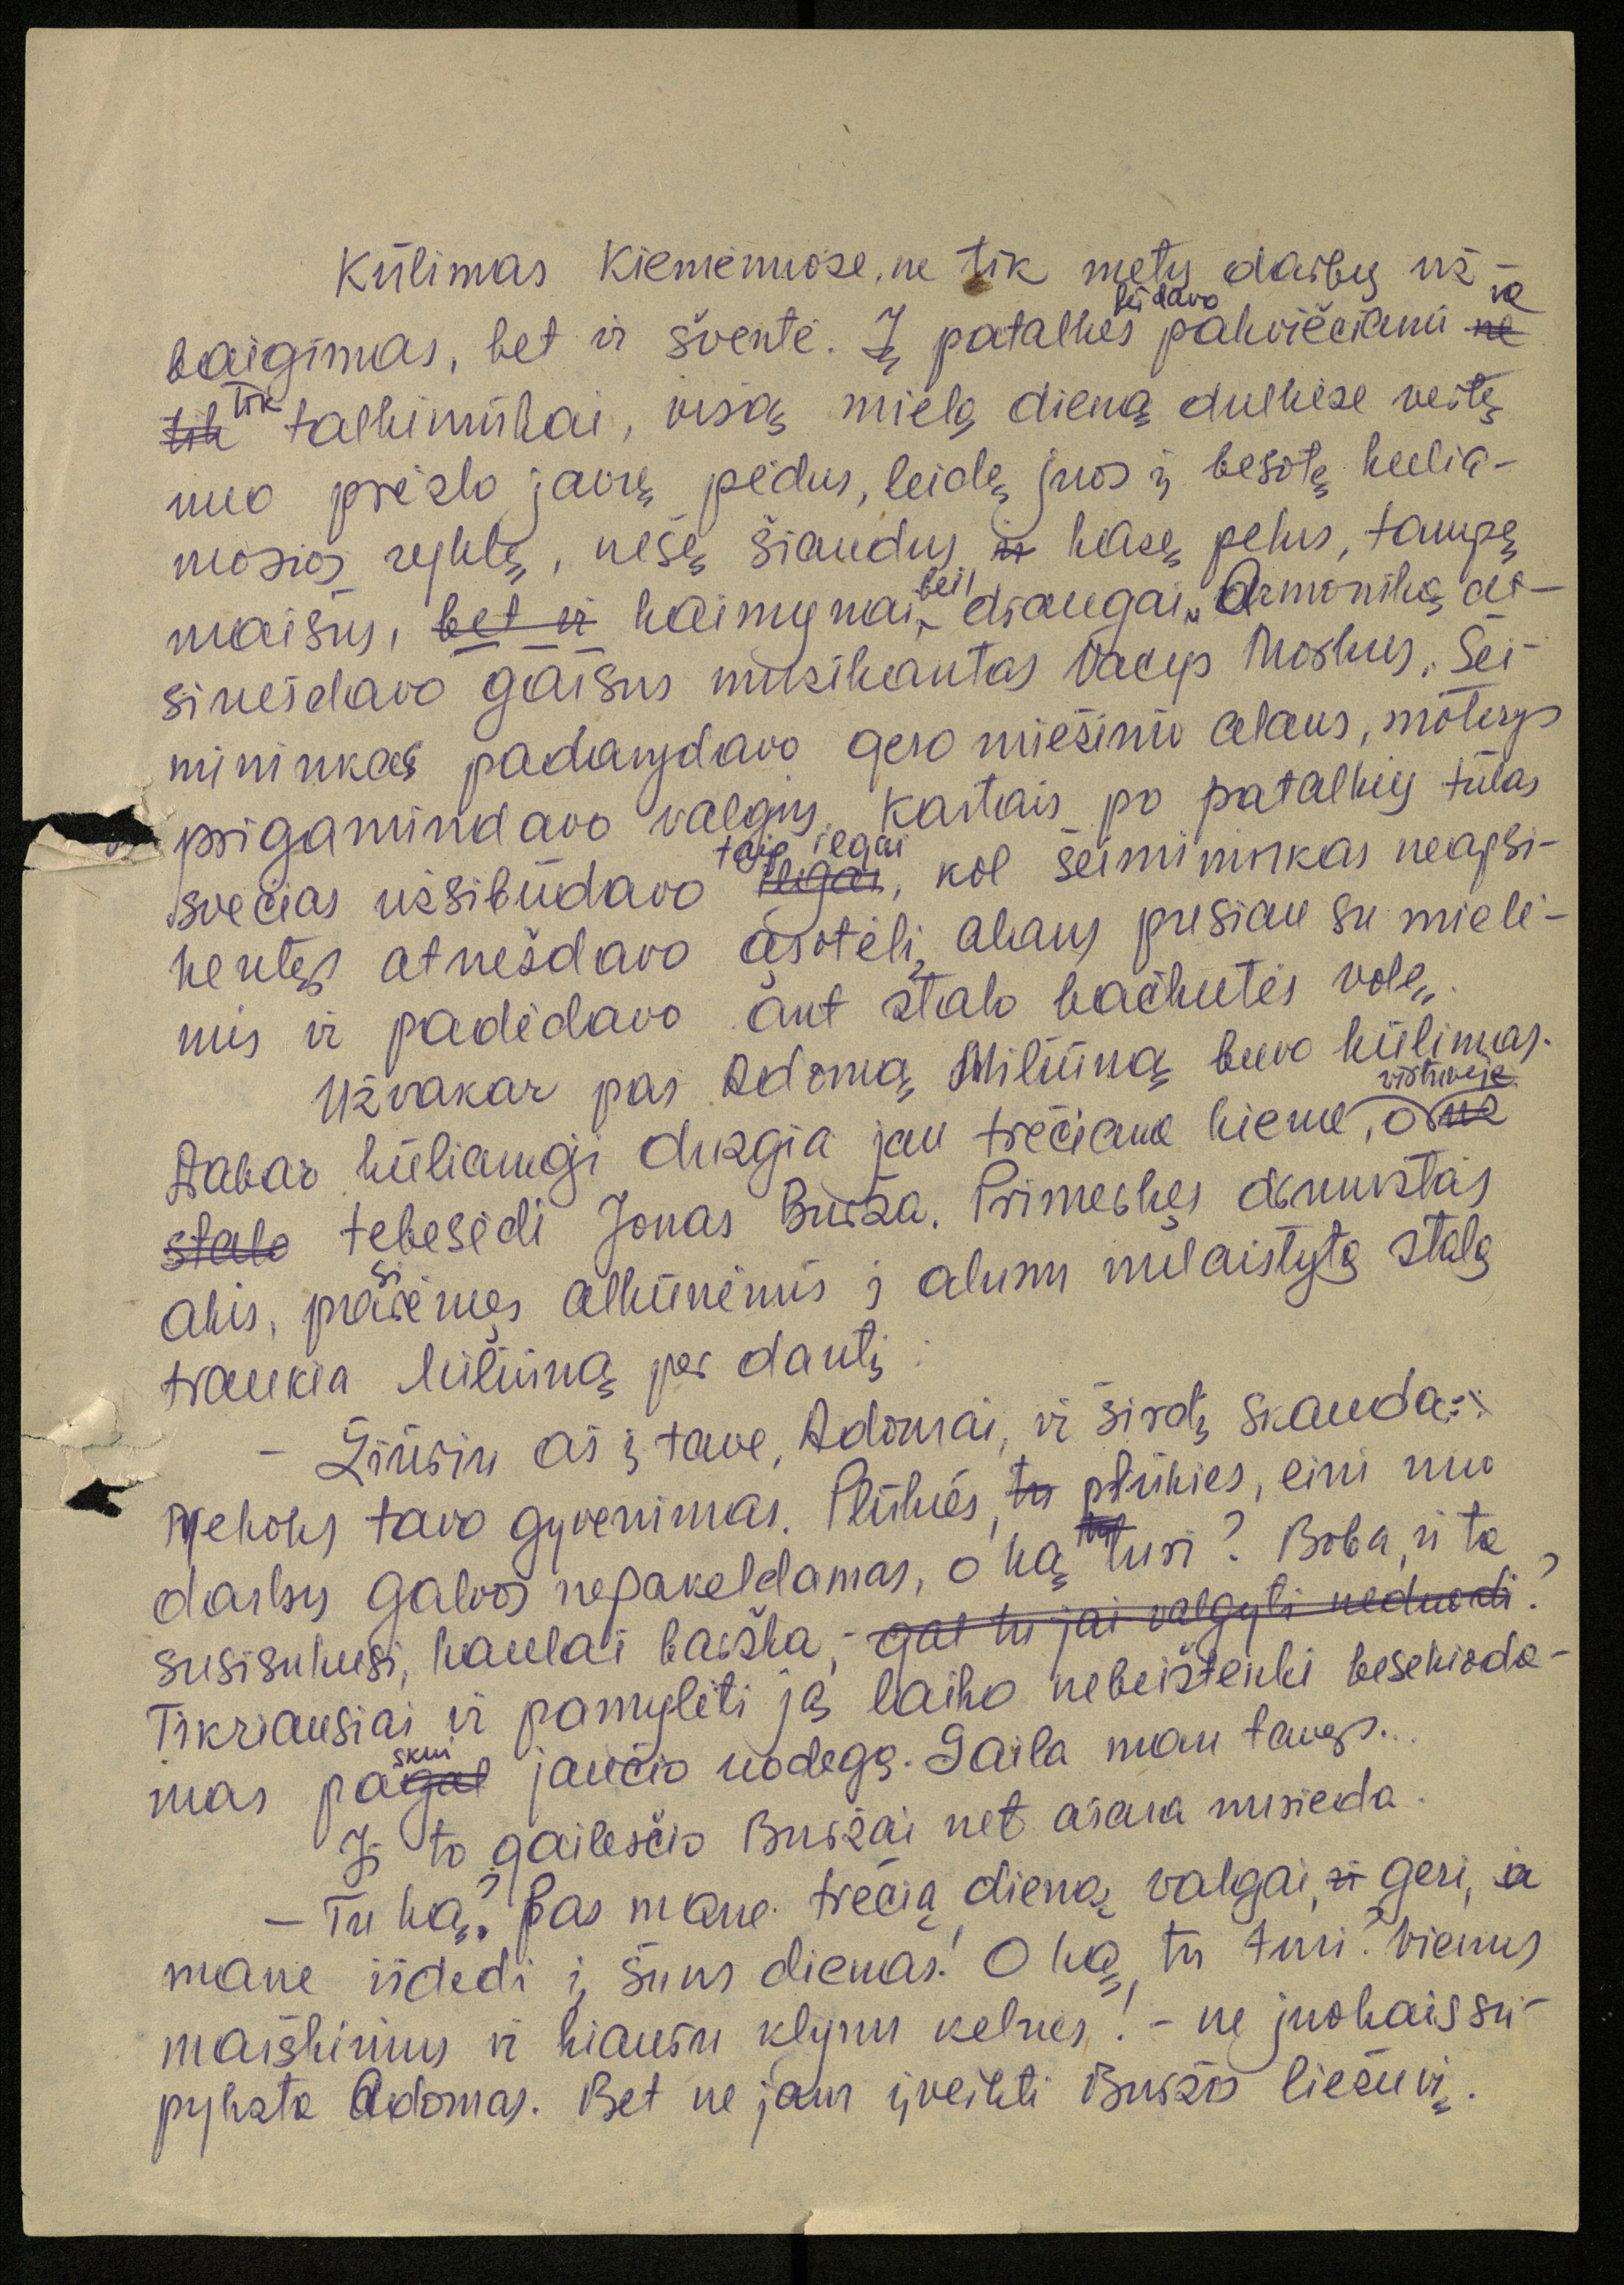 Kūlimas Kiemėnuose ne tik metų darbų už-
baigimas, bet ir šventė. Į patalkes būdavo pakviečiami ~~ne~~ ne
~~tik~~ tik talkininkai, visą mielą dieną dulkėse vertę
nuo prėslo javų pėdus, leidę juos į besotę kulia-
mosios ryklę, nešę šiaudus ~~ir~~ kasę pelus, tampę
maišus, ~~bet ir~~ kaimynai bei draugai. Armoniką at-
sinešdavo gaišus muzikantas Vacys Morkus. Šei-
mininkas padarydavo gero miežinio alaus, moterys
prigamindavo valgių. Kartais po patalkių tūlas
svečias užsibūdavo ~~ilgai~~ taip ilgai, kol šeimininkas neapsi-
kentęs atnešdavo ąsotėlį alaus pusiau su mielė-
mis ir padėdavo ant stalo bačkutės volę.
Užvakar pas Adomą Miliūną buvo kūlimas.
Dabar kuliamoji duzgia jau trečiame kieme, o ~~už~~ virtuvėje
~~stalo~~ tebesėdi Jonas Burža. Primerkęs drumstas
akis, prasiėmęs alkūnėmis į alumi nulaistytą stalą
traukia Miliūną per dantį:
- Žiūriu aš į tave, Adomai, ir širdį skauda...
Niekoks tavo gyvenimas. Plūkies, ~~tu~~ plūkies, eini nuo
darbų galvos nepakeldamas, o ką ~~tu~~ turi? Boba, ir ta
susisukusi, kaulai barška, - ~~gal tu jai valgyti neduodi~~?
Tikriausiai ir pamylėti ją laiko nebeištenki besekioda-
mas pa~~gal~~skui jaučio uodegą. Gaila man tavęs...
Iš to gailesčio Buržai net ašara nurieda.
- Tu ką? Pas mane trečią dieną valgai, ~~ir~~ geri, ir
mane išdedi į šuns dienas! O ką tu turi? Vienus
marškinius ir kiauru klynu kelnes! - ne juokais su-
pyksta Adomas. Bet ne jam įveikti Buržos liežuvį.